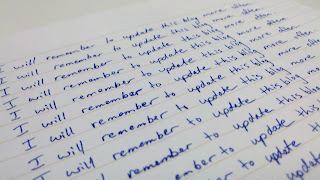 I will remember to update this blog more often.
I will remember to update this blog more often.
I will remember to update this blog more often.
I will remember to update this blog more often.
I will remember to update this blog more
I will remember to update this blog more
I will remember to update this blog
I will remember to update this blog
I will remember to update this
I will remember to update
remember to update